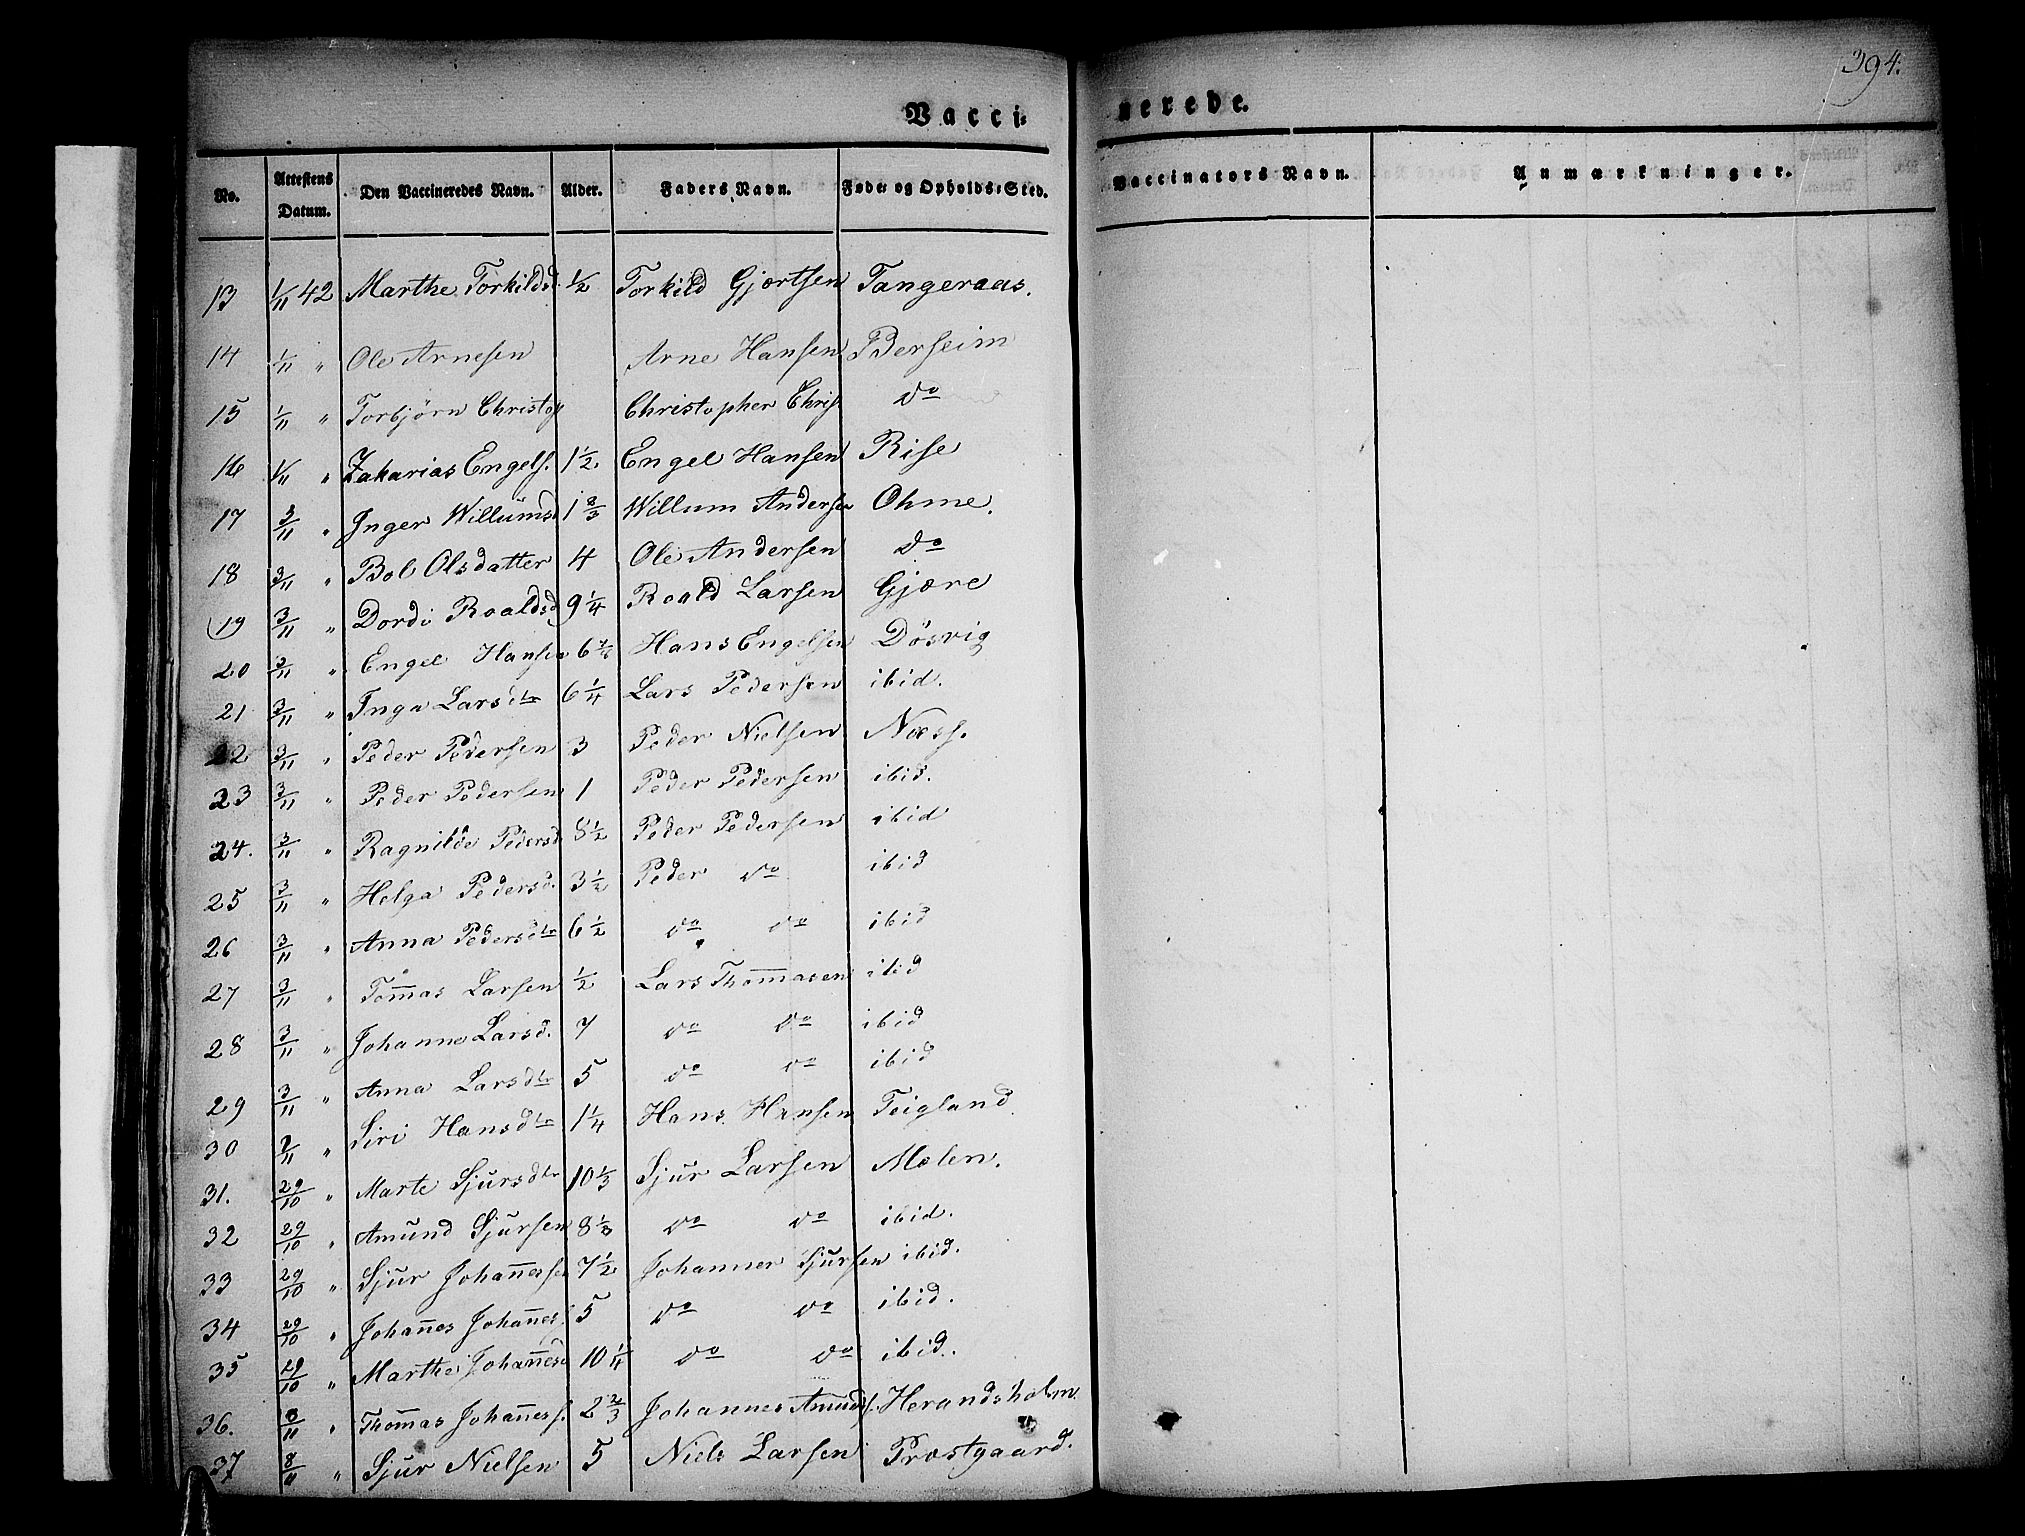 394.
Vacci-
nerede.
No. Attestens Datum. Den Vaccineredes Navn. Alder. Faders Navn. Føde- og Opholds-Sted. Vaccinators Navn. Anmærkninger.
13 1/11 42 Marthe Torkildsd 1/2 Torkild Gjertsen Tangeraas.
14 1/11 " Ole Arnesen Arne Hansen
15 1/11 " Torbjörn Christop Christopher Chris do
16 1/11 " Zakarias Engels. 1 1/2 Engel Hansen Rise
17 3/11 " Inger Willumsd 1 Willum Andersen Ohme.
18 3/11 " Bol Olsdatter 4 Ole Andersen do
19 3/11 " Dordi Roaldsd 9 1/4 Roald Larsen Gjære
20 3/11 " Engel Hansen 6 Hans Engelsen Dösvig
21 3/11 " Inga Larsdtr 6 1/4 Lars Pedersen ibid.
22 3/11 " Peder Pedersen 3 Peder Nielsen Næss.
23 3/11 " Peder Pedersen 1 Peder Pedersen ibid.
24. 3/11 " Ragnilde Pedersd 8 1/2 Peder Pedersen ibid
25 3/11 " Helga Pedersd. 3 1/2 Peder do ibid
26 3/11 " Anna Pedersdtr 6 1/2 do do ibid
27 3/11 " Tom̅mas Larsen 1/2 Lars Thom̅masen ibid
28 3/11 " Johanne Larsd. 7 do do ibid
29 3/11 " Anna Larsdtr 5 do do ibid
30 " Siri Hansdtr 1 1/4 Hans Hansen Teigland
31. 29/10 " Marte Sjursdtr 10 1/3 Sjur Larsen Melen.
32 29/10 " Amund Sjursen 8 1/3 do do ibid.
33 29/10 " Sjur Johannessen 7 1/2 Johannes Sjursen ibid.
34 29/10 " Johannes Johannes. 5 do do ibid.
35 29/10 " Marthe Johannesd 10 do do ibid.
36. 8/11 " Thom̅mas Johanness. 2 2/3 Johannes Amunds. Herandsholm
37 8/11 " Sjur Nielsen 5 Niels Larsen Præstgaard.